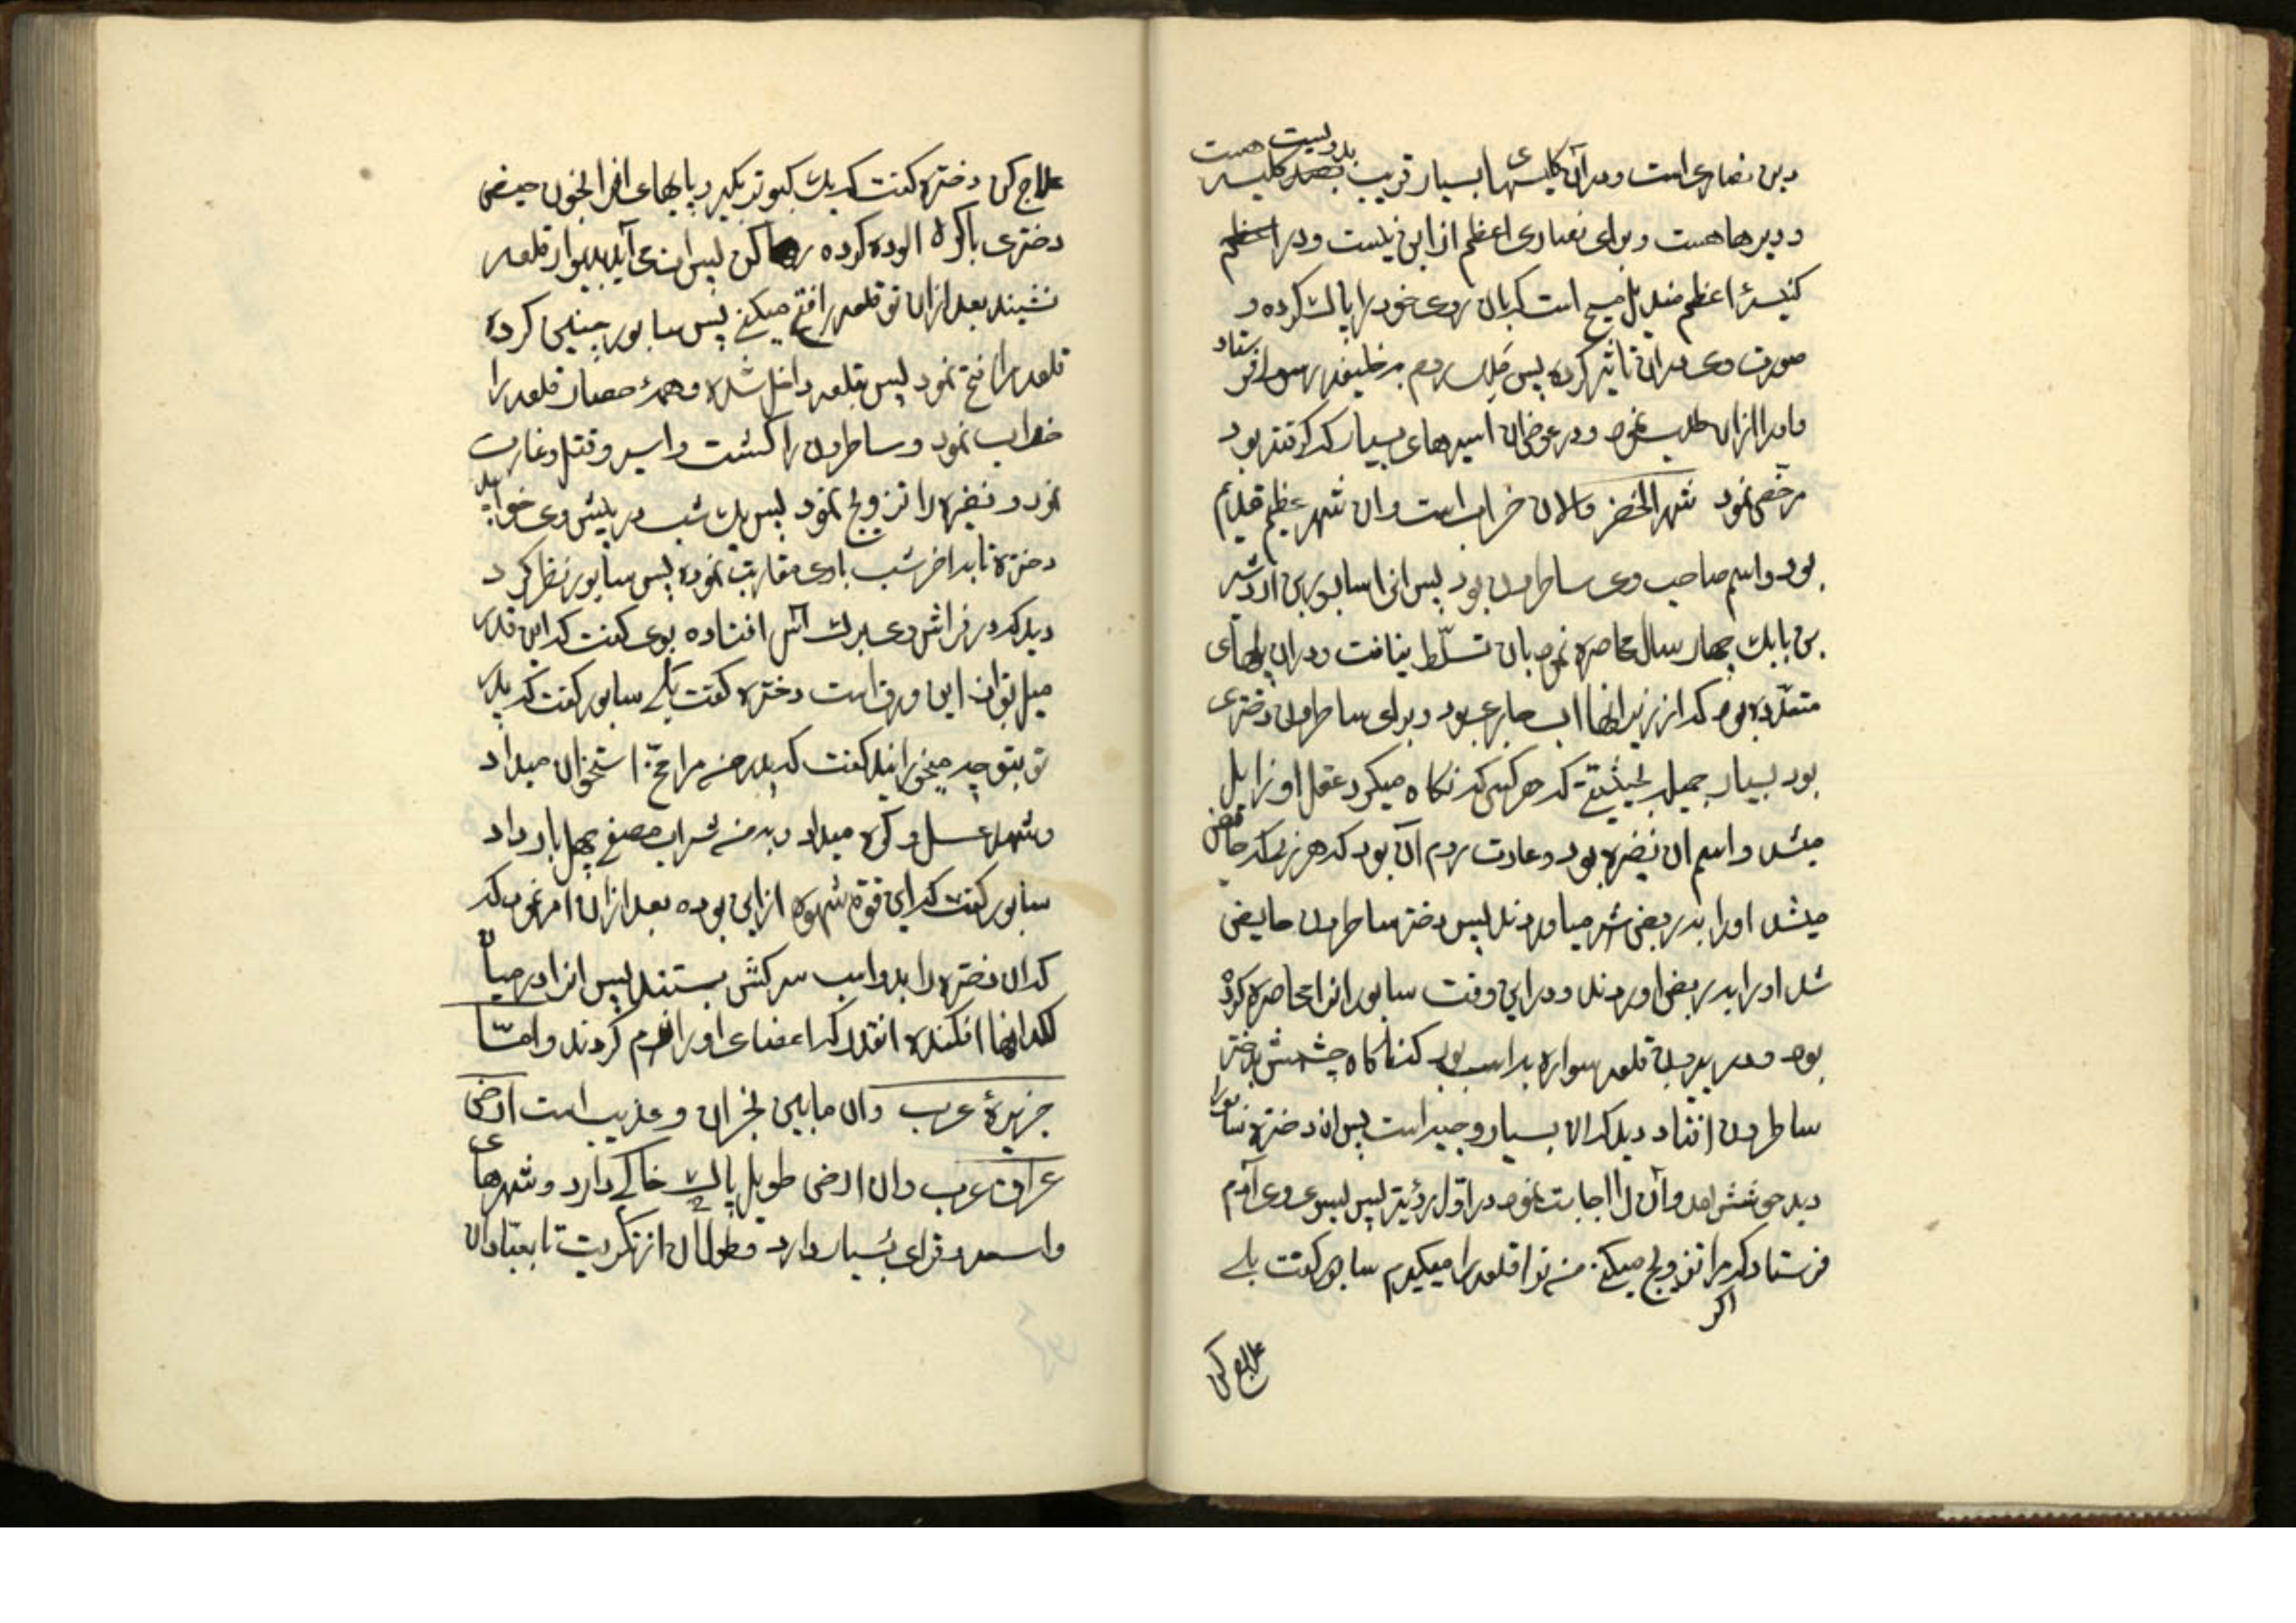 دین نصاری است و در آن کلیسهای بسیار قریب بدویست کلیسه هست
و دیرها هست و برای نصاری اعظم از این نیست و در
کنیسهٔ اعظم مندیل مسیح است که بان روی خود را پاک کرده و
صورت وی در ان تاثیر کرده پس ملک روم بر خلیفه رسول فرستاد
و او را از ان طلب نمود و در عوض ان اسیرهای بسیار که گرفته بود
مرخص نمود شهر الحضر والان خراب است وان شهر عظیم قدیم
بود و اسم صاحب وی ساطرون بود پس انرا سابور بن اردشیر
بن بابک چهار سال محاصره نمود بان تسلّط نیافت و در ان پلهای
متعدّده بود که از زیر انها اب جاری بود و برای ساطرون دختری
بود بسیار جمیله بحیثیتی که هر کس که نکاه میکرد عقل او زایل
میشد و اسم ان نضیره بود و عادت روم آن بود که هر زنی که حائض
میشد او را بدر بعض شهر میاوردند پس دختر ساطرون حایض
شد او را بدر بعض اوردند و در این وقت سابور انرا محاصره کرده
بود و در بیرون قلعه سواره بر اسب بود که نکاه چشمش بدختر
ساطرون افتاد دید که ان بسیار وجیه است پس ان دختره سابور را
دید خوشش امد و آن را اجابت نمود در اوّل رؤیة پس بسوی وی آدم
فرستاد که اکر مرا تزویج میکنی من ترا قلعه را میکیرم سابور کفت بلی
علاج کن
علاج کن دختره کفت که یک کبوتر بکیر و پایهای انرا بخون حیض
دختری باکره الوده کرده رها کن پس ان می آید بدیوار قلعه
نشیند بعد از ان تو قلعه را فتح میکنی پس سابور چنین کرده
قلعه را فتح نمود پس بقلعه داخل شده و همهٔ حصار قلعه را
خراب نمود و ساطرون را کشت و اسیر و قتل و غارت
نمود و نضیره را تزویج نمود پس یک شب در پیش وی خوابید
دختره تا بداخر شب باوی مقاربت نموده پس سابور نظر کرد
دید که در فراش وی برک اس افتاده بوی کفت که این قدر
میل تو ان این ورق است دختره کفت بلی سابور کفت که پدر
تو بتو چه میخورانید کفت که پدر من مرا مخ استخوان میداد
و شهد عسل و کره میداد و بمن شراب مصفی چهل بار داد
سابور کفت که این قوّة شهوة از این بوده بعد از ان امر نمود که
که ان دختره را بدو اسب سرکش بستند پس انرا در میان
لکد انها افکنده انقدر که اعضای او را نرم کردند و امّا
جزیرهٔ عرب وان مابین نجران و عذیب است ارض
عراق عرب وان ارض طویل پاک خاکی دارد و شهرهای
واسعه و قرای بسیار دارد و طولان از تکریت تا بعبّادان